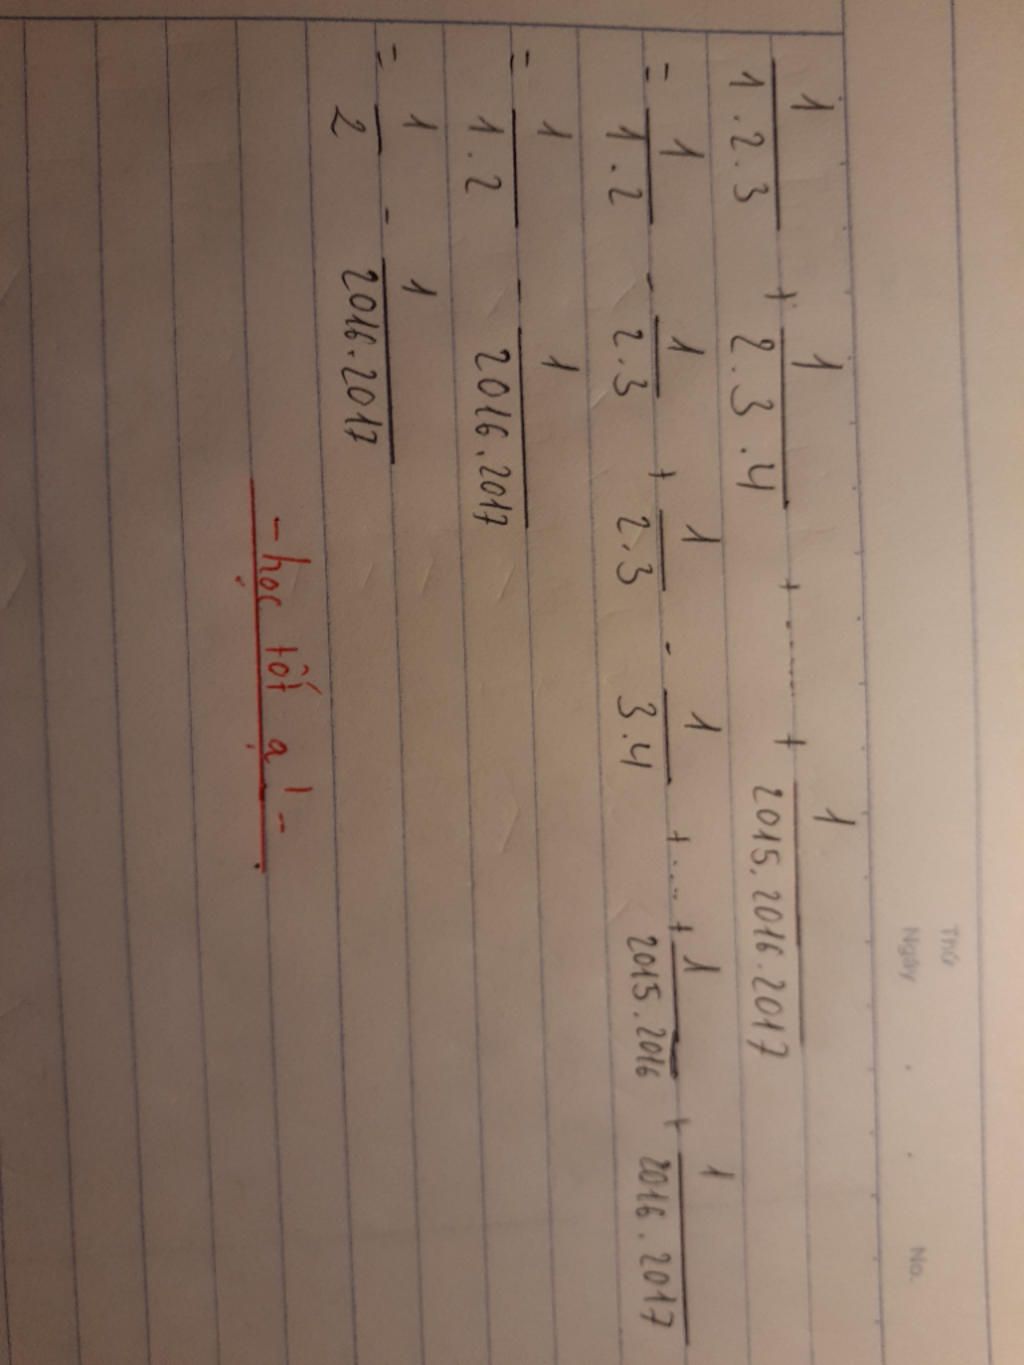 Thứ
Ngày . . No.
1/1.2.3 + 1/2.3.4 + ...... + 1/2015.2016.2017
= 1/1.2 - 1/2.3 + 1/2.3 - 1/3.4 + .... + 1/2015.2016 + 1/2016.2017
= 1/1.2 - 1/2016.2017
= 1/2 - 1/2016.2017
- học tốt ạ! -